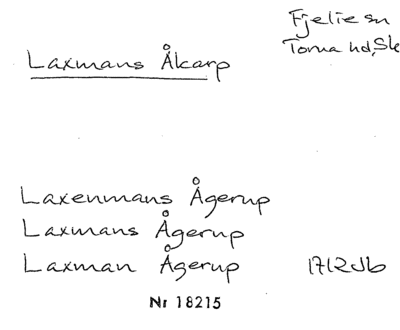 Fjelie sn
Torna hd, Sk
Laxmans Åkarp
Laxenmans Ågerup
Laxmans Ågerup
Laxman Ågerup 1712 Jb
Nr 18215